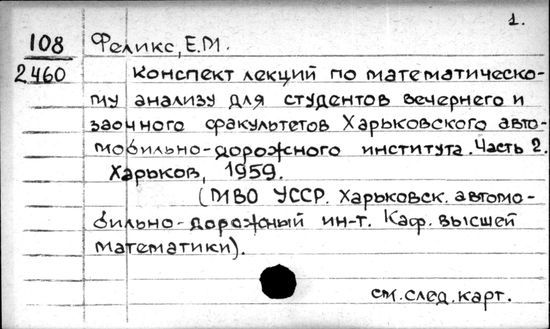 1.
108 Феликс, Е.М.
2460 Конспект лекций по математическо-
му анализу для студентов вечернего и
заочного факультетов Харьковского авто-
мобильно-дорожного института. Часть 2.
Харьков, 1959.
(МВО УССР. Харьковск. автомо-
бильно-дорожный ин-т. Каф. высшей
математики).
см. след. карт.